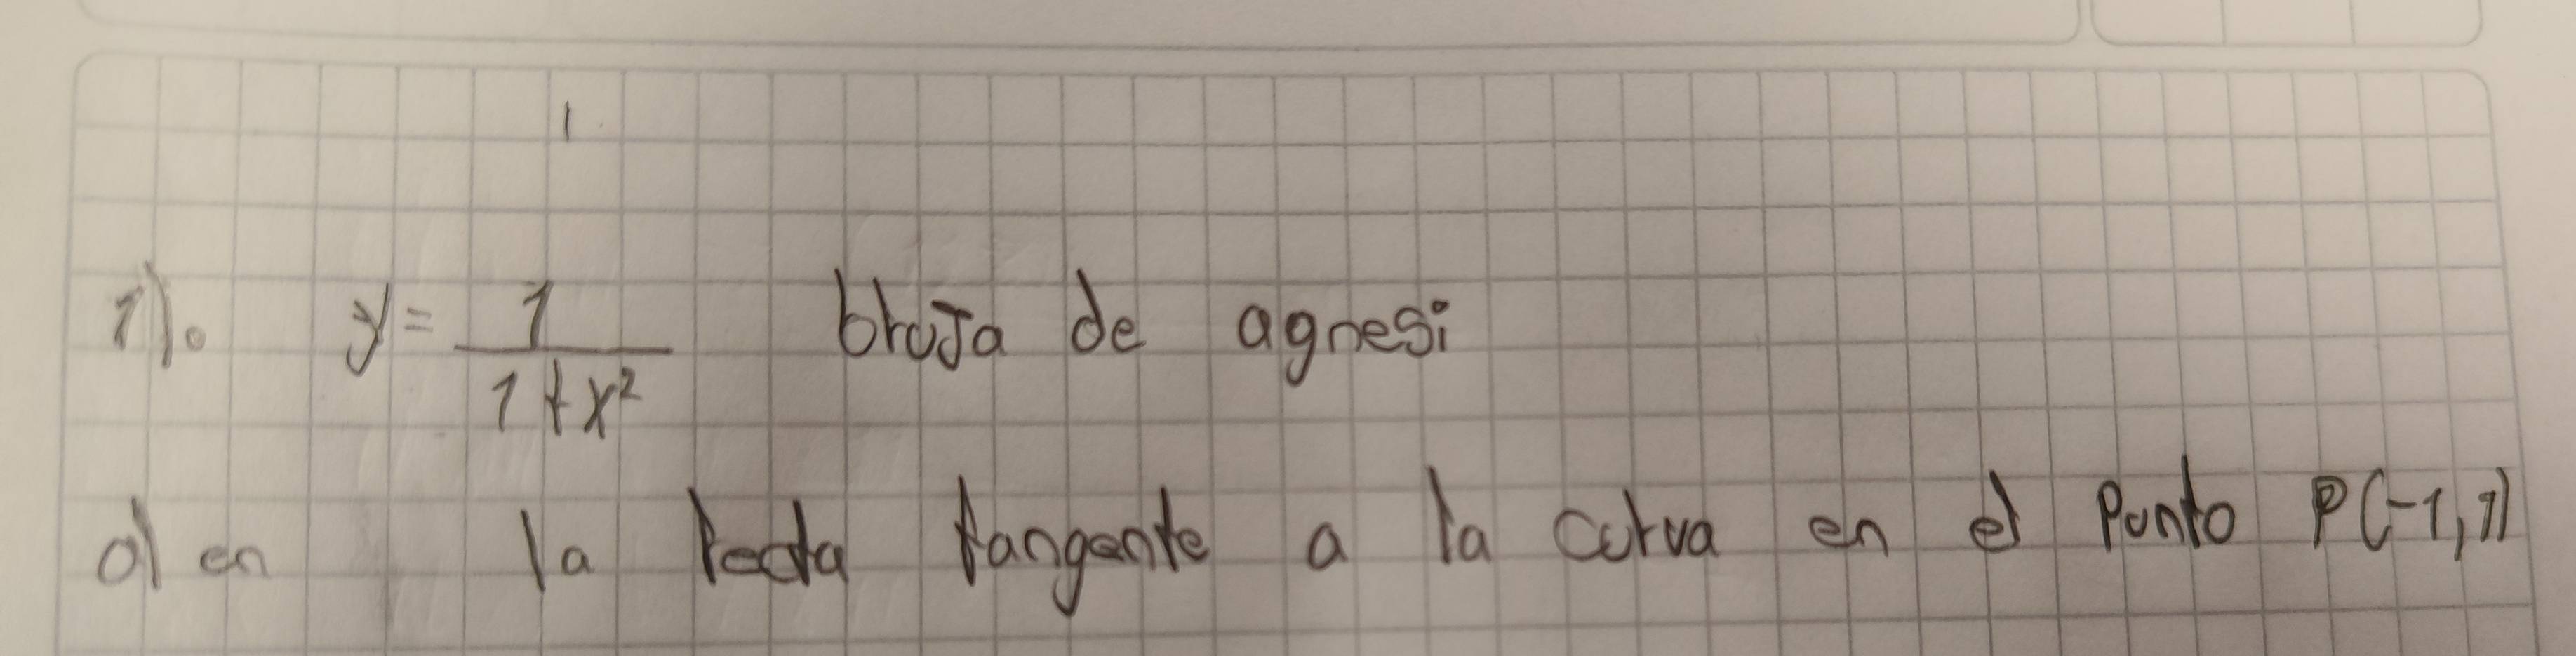 1). y = 1/(1+x²) bruja de agnesi
a) en la recta tangente a la curva en el Punto P(-1,1)